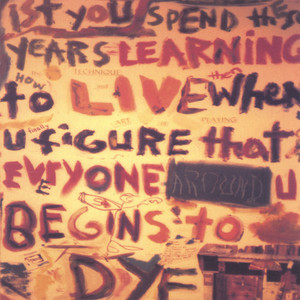 1st YOU SPEND these
YEARS LEARNING
HOW TECHNIQUE and then
to LIVE when
ART OF PLAYING
u FIGURE that
EVERYONE AROUND u
BEGINS to
DYE